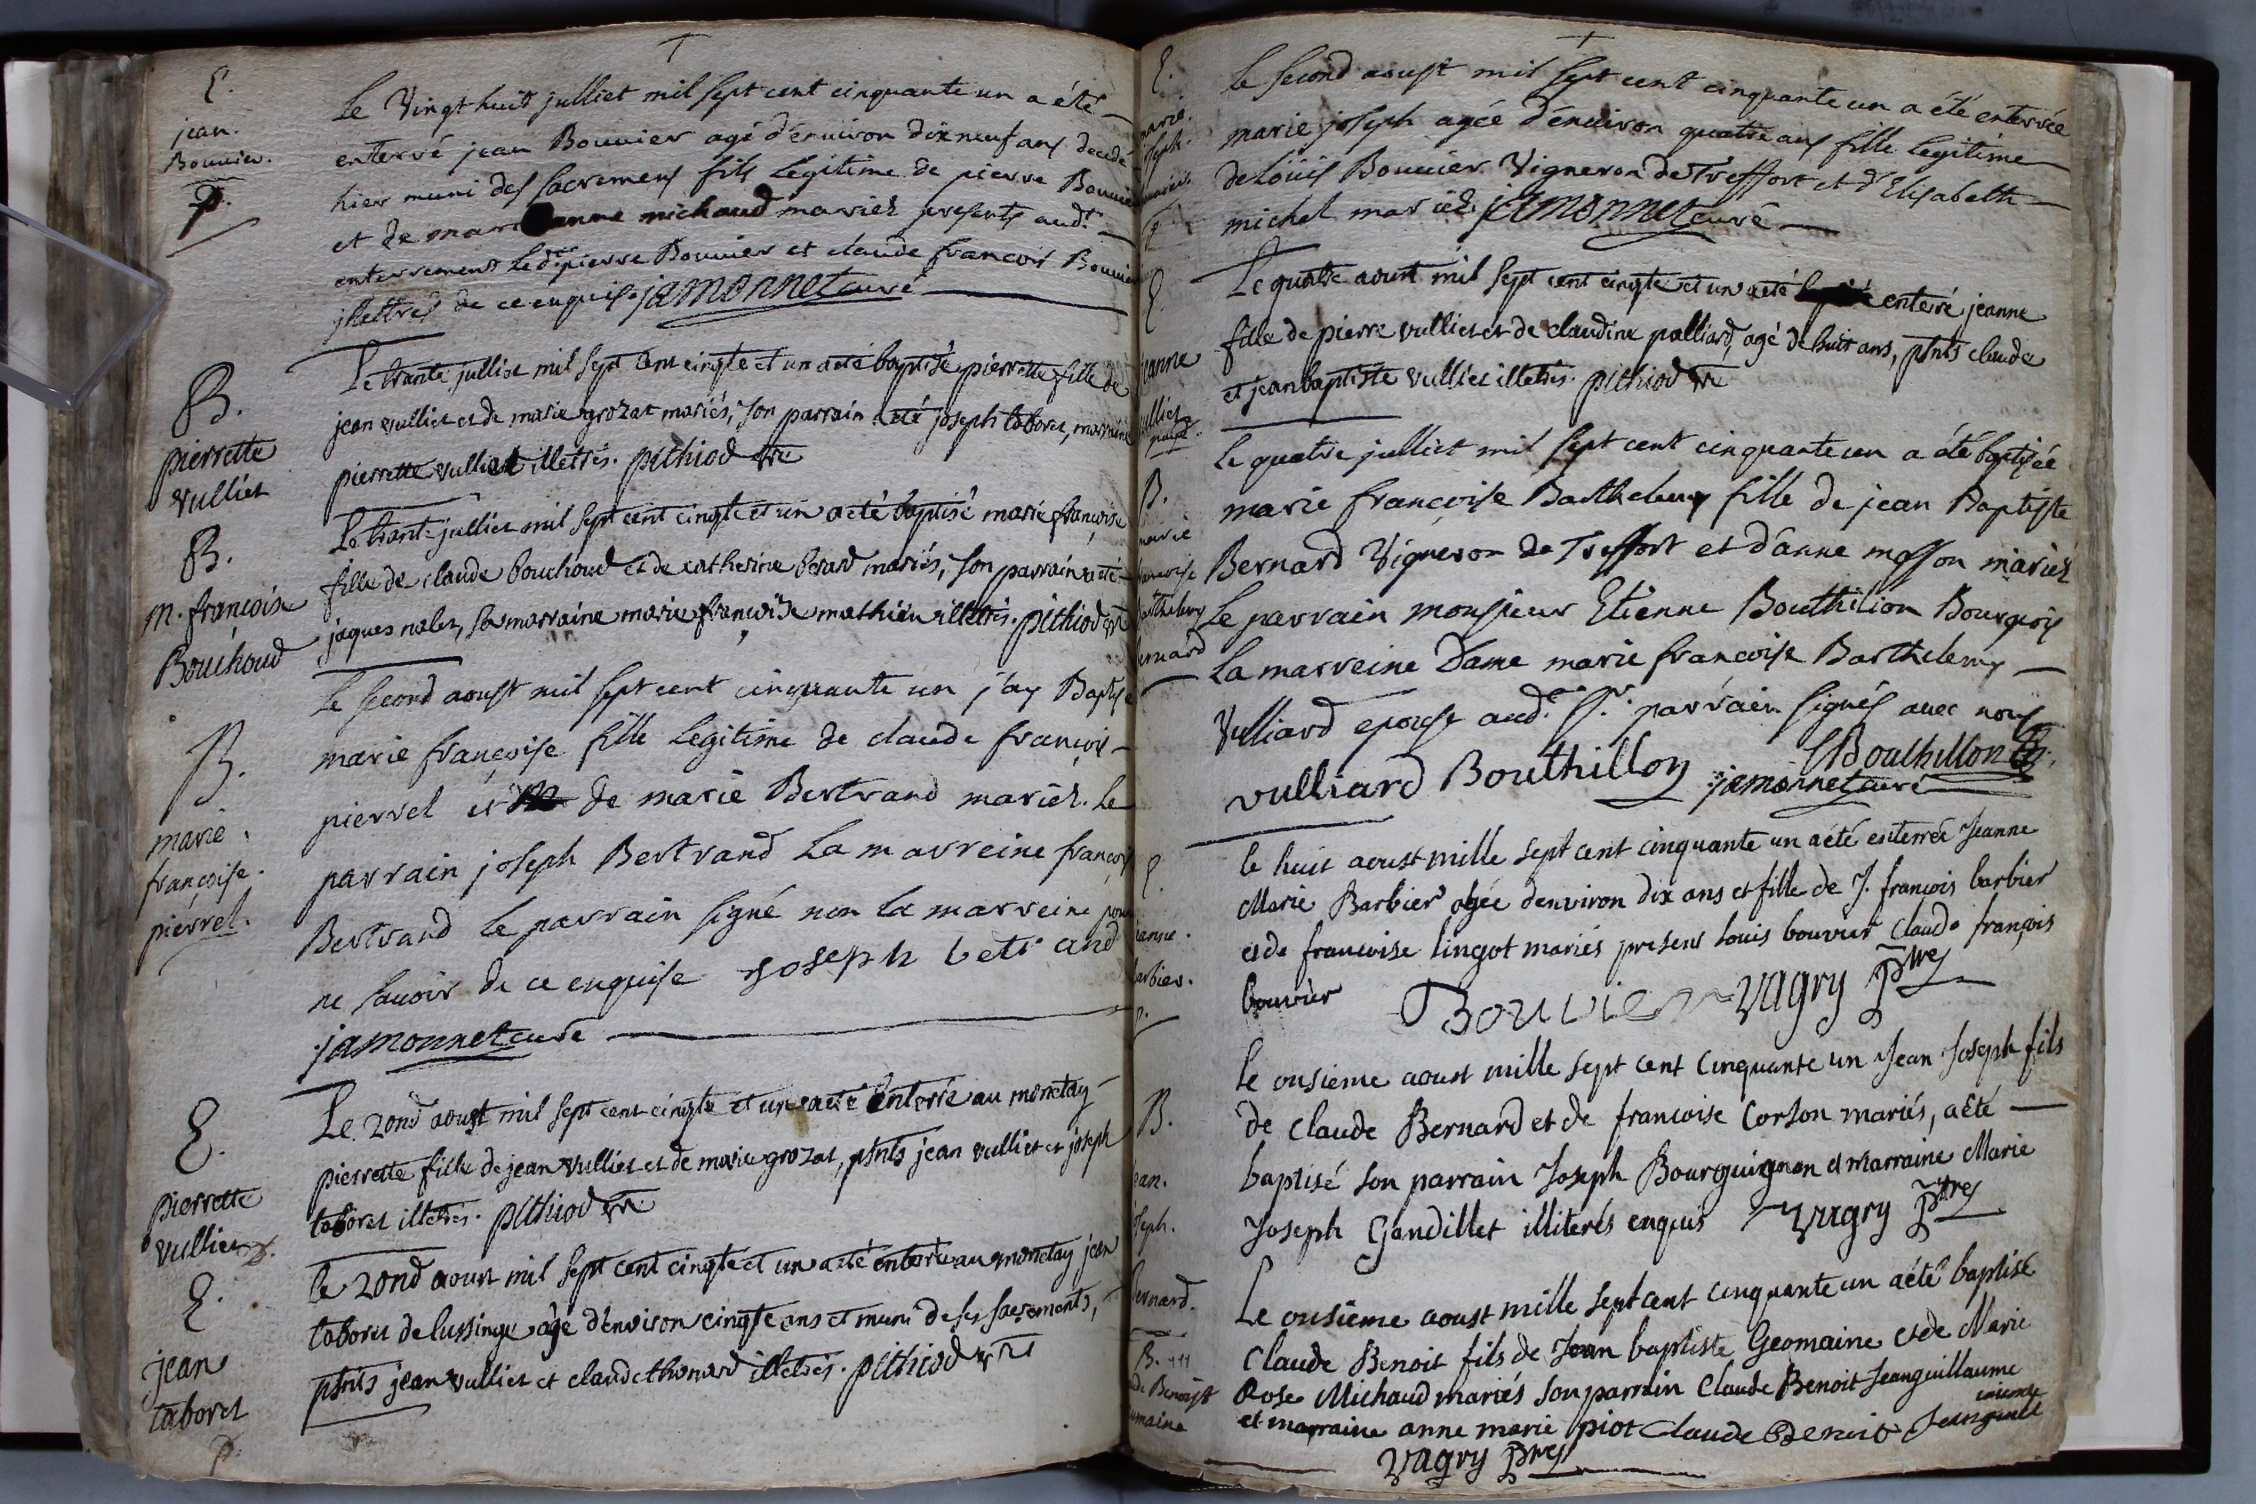 E.
jean.
Bouvier.
p.
Le Vingt huit julliet mil sept cent cinquante un a été
enterré jean Bouvier agé d'énviron dix neuf ans decedé
hier muni des sacremens fils legitime de pierre Bouvier
et de marianne michaud mariez presents aud.t
enterrement led. pierre Bouvier et claude francois Bouvier
jllettres de ce enquis. jamonnet curé
B.
pierrette
vulliet
Le trante julliet mil sept cent cinqte et un a eté baptisé pierrette fille de
jean vulliet et de marie grozat mariés, son parrain a eté joseph taboret, marraine
pierrette vulliet illetrés. pithiod vre
B.
m. françoise
Bouchoud
Le trante julliet mil sept cent cinqte et un a eté baptisé marie françoise
fille de claude bouchoud et de catherine berard mariés, son parrain a eté
jaques nalet, sa marraine marie françoise mathieu illetrés. pithiod vre
B.
marie.
françoise.
pierrel.
Le second aoust mil sept cent cinquante un j'ay Baptisé
marie françoise fille legitime de claude françois
pierrel et de marie Bertrand mariez. Le
parrain joseph Bertrand La marreine françoise
Bertrand le parrain signé non la marreine pour
ne sauoir de ce enquise joseph betrand
jamonnet curé
E.
pierrette
vulliet
p.
Le 2ond aoust mil sept cent cinqte et un a eté enterré au monetay
pierrette fille de jean vulliet et de marie grozat, pnts jean vulliet et joseph
taboret illetrés. pithiod vre
E.
jean
taboret
p.
le 2ond aoust mil sept cent cinqte et un a eté enterré au monetay jean
taboret de lussinge agé d'énviron cinqte ans et muni de ses sacrements,
pnts jean vulliet et claude thomard illetrés. pithiod vre
E.
marie.
joseph.
Bouvier.
p.
le second aoust mil sept cent cinquante un a été enterrée
marie joseph agée d'énviron quatre ans fille legitime
de Loüis Bouvier Vigneron de Treffort et d'Elisabeth
michel mariéz. jamonnet curé
E.
jeanne
vulliet
Le quatre aoust mil sept cent cinqte et un a eté enteré jeanne
fille de pierre vulliet et de claudine palliard, agé de huit ans, pnts claude
et jean baptiste vulliet illetrés. pithiod vre
B.
marie
francoise
Barthelemy
Bernard
Le quatre julliet mil sept cent cinquante un a été baptisée
marie françoise Barthelemy fille de jean Baptiste
Bernard Vigneron de Treffort et d'anne masson mariez
Le parrain monsieur Etienne Bouthilion Bourgois
La marreine Dame marie françoise Barthelemy
Vulliard epouse aud. Sr. parrain signés avec nous
vulliard Bouthillon EBouthillon
jamonnet curé
E.
jeanne.
barbier.
p.
le huit aoust mille sept cent cinquante un a été enterrée Jeanne
Marie Barbier agée denviron dix ans et fille de J. françois barbier
et de francoise lingot mariés presens Louis bouvier Claude françois
bouvier Bouvier vagry Ptre
B.
jean.
joseph.
Bernard.
le onsieme aoust mille sept cent Cinquante un Jean Joseph fils
de Claude Bernard et de francoise Corson mariés, a été
baptisé son parrain Joseph Bourguignon et marraine Marie
Joseph Gandillet illiterés enquis Vagry Ptre
B.
Benoist
Le onsieme aoust mille sept cent cinquante un a été baptisé
Claude Benoit fils de Jean baptiste Geomaine et de Marie
Rose Michaud mariés son parrain Claude Benoit Jeanguillaume
et marraine anne marie piot Claude Benoit Jeanguille
aume
vagry Ptre